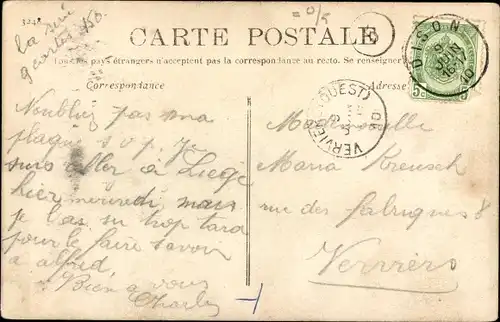 la série
9 cartes 150
CARTE POSTALE
Tous les pays étrangers n'acceptent pas la correspondance au recto. Se renseigner
Correspondance
Adresse
N'oubliez pas ma
plaque s v p. Je
suis aller à Liege
hier mercredi mais
je l'as su trop tard
pour le faire savoir
à alfred
Bien à vous
Charles
Mademoiselle
Maria Kreusch
rue des fabriques 8
Verviers
DISON
9
JUIN
10
5c
VERVIERS (OUEST)